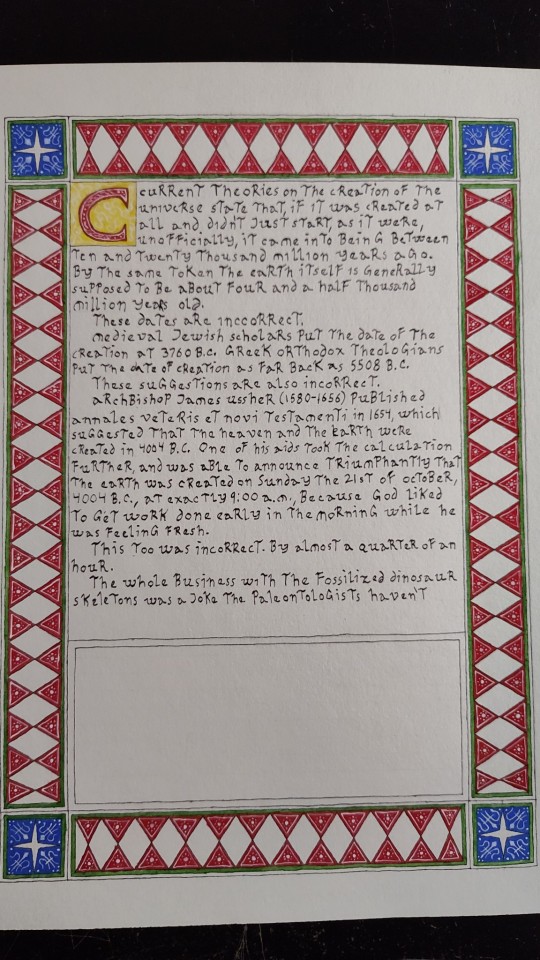 Current Theories on the creation of the
universe state that, if it was created at
all and didn't just start, as it were,
unofficially, it came into being between
ten and twenty thousand million years ago.
By the same token the earth itself is generally
supposed to be about four and a half thousand
million years old.
These dates are inccorrect.
Medieval Jewish scholars put the date of the
creation at 3760 B.C. Greek Orthodox theologians
put the date of creation as far back as 5508 B.C.
These suggestions are also incorrect.
Archbishop James Ussher (1580-1656) published
annales veteris et novi testamenti in 1654, which
suggested that the heaven and the earth were
created in 4004 B.C. One of his aids took the calculation
further, and was able to announce triumphantly that
the earth was created on Sunday the 21st of October,
4004 B.C., at exactly 9:00 a.m., because God liked
to get work done early in the morning while he
was feeling fresh.
This too was incorrect. By almost a quarter of an
hour.
The whole business with the fossilized dinosaur
skeletons was a joke the paleontologists haven't